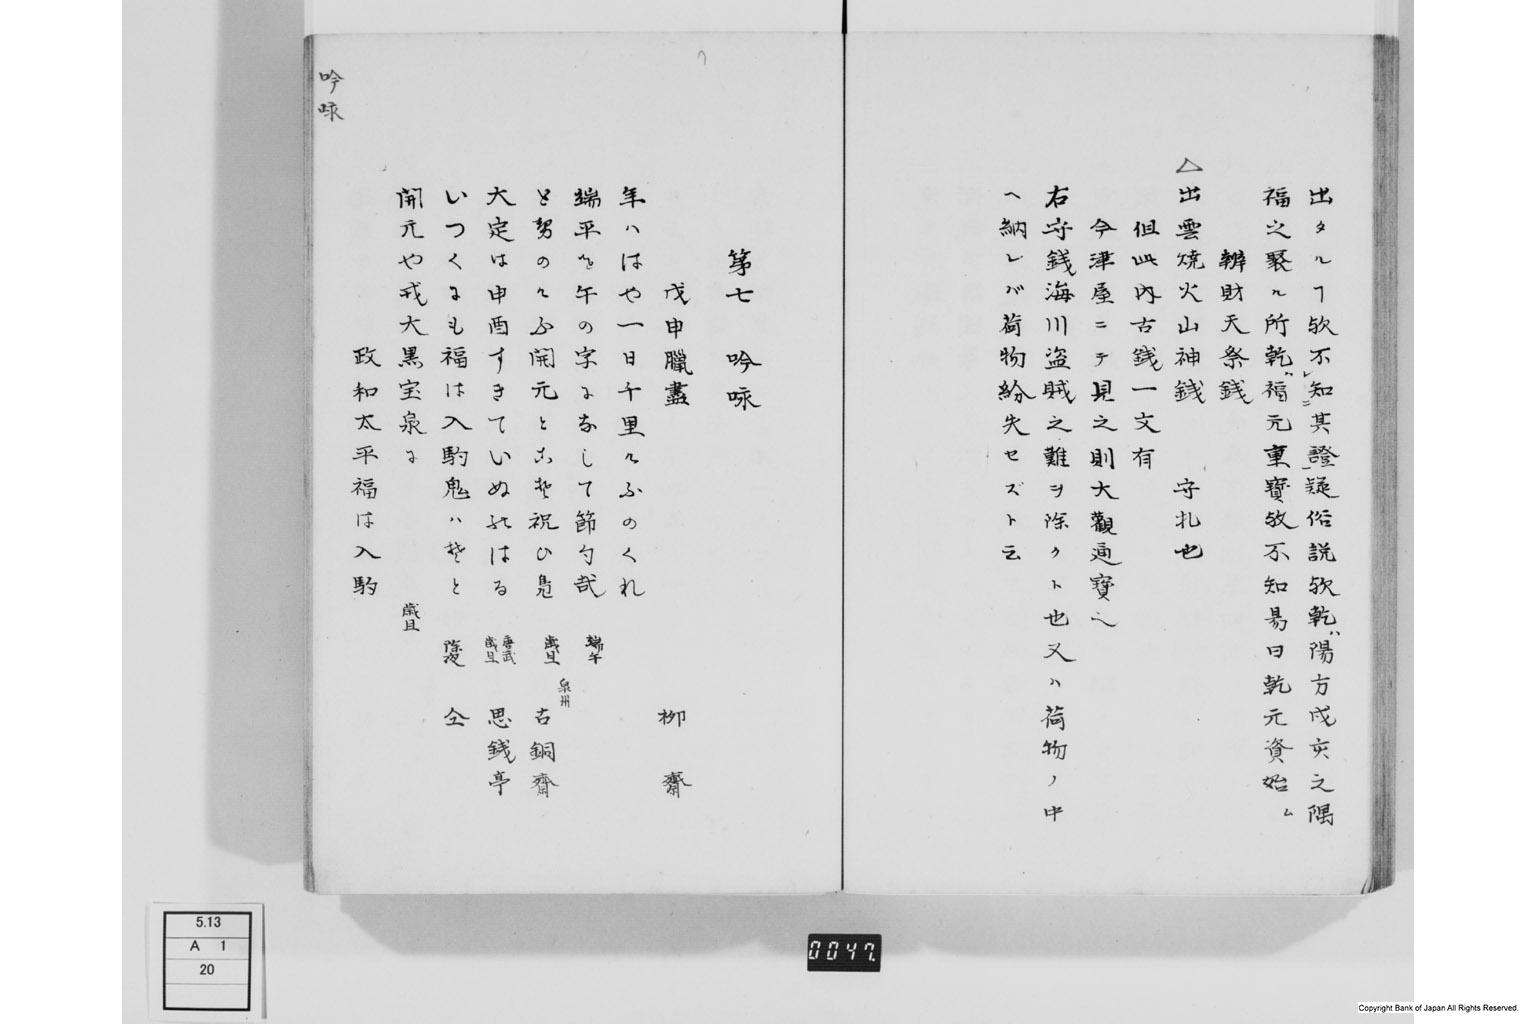 出タルヿ欤不知其證疑俗説欤乾ハ陽方戌亥之隅
福之聚ル所乾ハ福元重寳故不知易曰乾元資始ム
辨財天祭銭
△出雲焼火山神銭 守札也
但此内古銭一文有
今津屋ニテ見之則大觀通寳也
右守銭海川盗賊之難ヲ除クト也又ハ荷物ノ中
ヘ納レバ荷物紛失セズト云
第七 吟咏
戊申臘盡 柳齋
年ハはや一日千里けふのくれ
端平を午の字になして節句哉 端午
と努のけふ開元とこそ祝ひ 歳旦 泉州 古銅齋
大定は申酉すきていぬのはる 唐武 歳旦 思銭亭
いつくにも福は入駒鬼ハそと 除夜 仝
開元や戎大黒宝泉に 歳旦
政和太平福は入駒
吟咏
5.13
A 1
20
0047.
Copyright Bank of Japan All Rights Reserved.